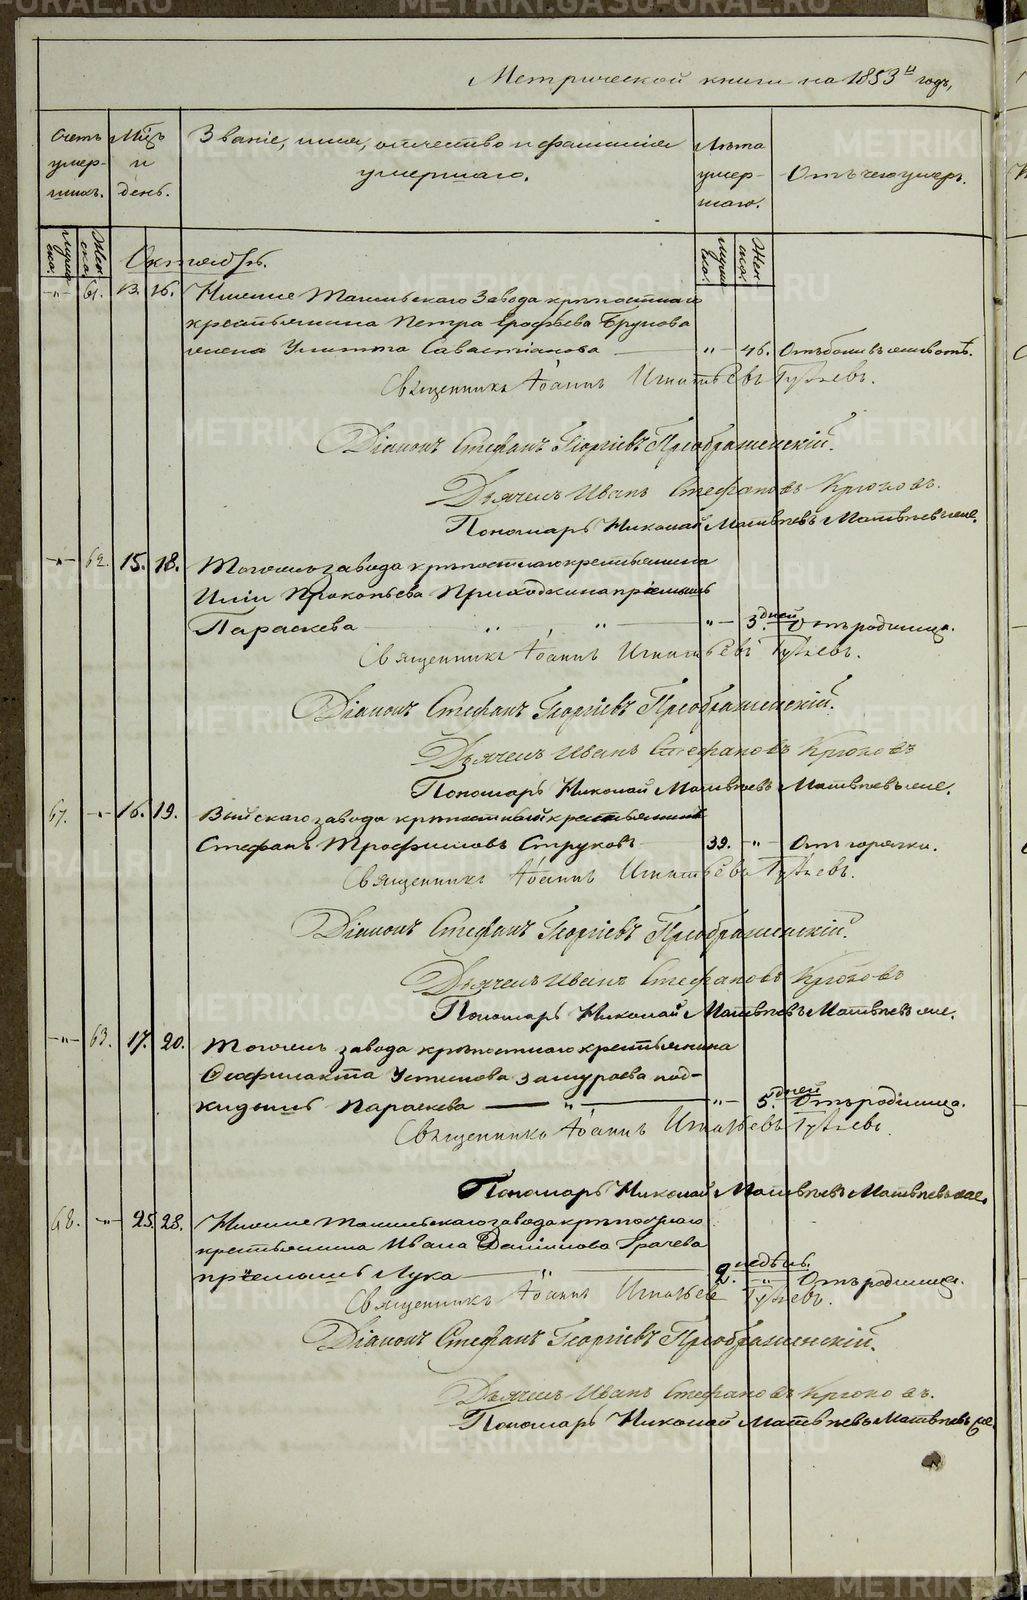 Метрической книги на 1853й годъ,
Счетъ умер-шихъ.
Мѣцъ и день.
Званіе, имя, отчество и фамилія умершаго.
Лѣта умер-шаго.
Отъ чего умеръ.
Муже-ска.
Жен-ска.
Муже-ска.
Жен-ска.
Октябрь.
-"- 61. 13. 16. Нижне Тагильскаго Завода крѣпостнаго
крестьянина Петра Ерофѣева Брунова
жена Улитта Савастіянова " 46. Отъ боли въ животѣ.
Священникъ Іоаннъ Игнатьевъ Гуляевъ.
Діаконъ Стефанъ Георгіевъ Преображенскій.
Дьячекъ Иванъ Стефановъ Крюковъ.
Пономарь Николай Матвѣевъ Матвѣевъ же.
-"- 62. 15. 18. Тогоже завода крѣпостнаго крестьянина
Иліи Прокопьева Приходкина пріемышъ
Параскева " " " 3. дней Отъ родимца.
Священникъ Іоаннъ Игнатьевъ Гуляевъ.
Діаконъ Стефанъ Георгіевъ Преображенскій.
Дьячекъ Иванъ Стефановъ Крюковъ
Пономарь Николай Матвѣевъ Матвѣевъ же.
67. -"- 16. 19. Выйскаго завода крѣпостный крестьянинъ
Стефанъ Трофимовъ Струковъ 39. -"- Отъ горячки.
Священникъ Іоаннъ Игнатьевъ Гуляевъ.
Діаконъ Стефанъ Георгіевъ Преображенскій.
Дьячекъ Иванъ Стефановъ Крюковъ
Пономарь Николай Матвѣевъ Матвѣевъ же.
-"- 63. 17. 20. Тогожъ завода крѣпостнаго крестьянина
Ѳеофилакта Устинова Замураева под-
кидышъ Параскева " " 5. дней Отъ родимца.
Священникъ Іоаннъ Игнатьевъ Гуляевъ
Пономарь Николай Матвѣевъ Матвѣевъ же.
68. -"- 25. 28. Нижне Тагильскаго завода крѣпостнаго
крестьянина Ивана Даниилова Грачева
пріемышъ Лука " 2. недѣль. " Отъ родимца.
Священникъ Іоаннъ Игнатьевъ Гуляевъ.
Діаконъ Стефанъ Георгіевъ Преображенскій.
Дьячекъ Иванъ Стефановъ Крюковъ.
Пономарь Николай Матвѣевъ Матвѣевъ же.
METRIKI.GASO-URAL.RU